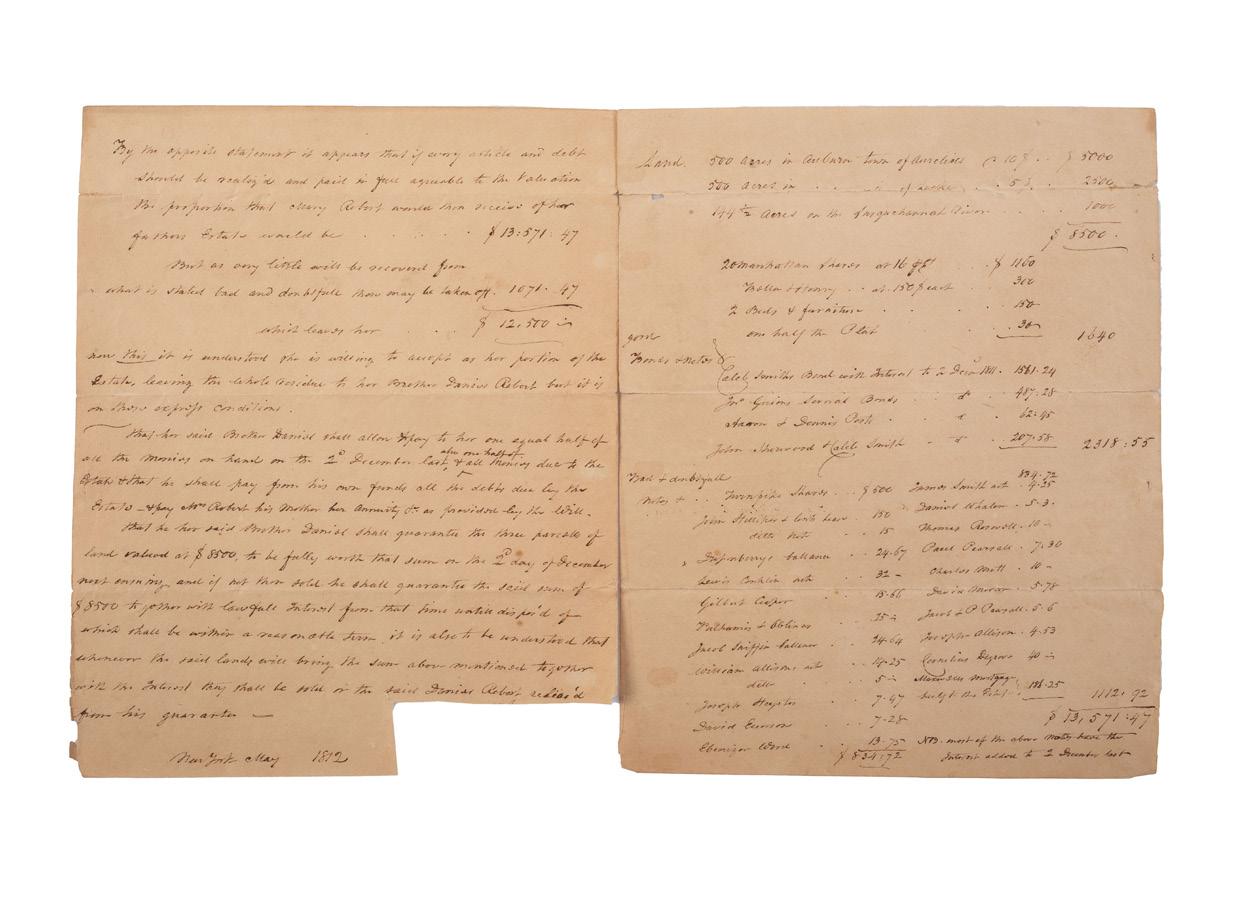 By the opposite statement it appears that if every article and debt
should be realiz'd and paid in full agreable to the Valuation
the proportion that Mary Robert would then receive of her
fathers Estate would be . . . . . $ 13:571. 47
But as very little will be recovered from
what is stated bad and doubtfull then may be taken off. 1071. 47
which leaves her . . . . $ 12,500 –
now this it is understood she is willing to accept as her portion of the
Estate, leaving the whole residue to her Brother Daniel Robert but it is
on these express conditions.
that her said Brother Daniel shall allow & pay to her one equal half of
all the Monies on hand on the 2d December last, & also one half of all Monies due to the
Estate & that he shall pay from his own funds all the debts due by the
Estate – & pay Mrs Robert his Mother her Annuity &c as provided by the Will –
that he her said Brother Daniel shall guarantee the three parcells of
land valued at $8500, to be fully worth that sum on the 2d day of December
next ensuing, and if not then sold he shall guarantee the said sum of
$8500 together with lawfull Interest from that time untill dispos'd of
which shall be within a reasonable term, it is also to be understood that
whenever the said lands will bring the sum above mentioned together
with the Interest they shall be sold or the said Daniel Robert releas'd
from his guarantee —
New York May 1812
Land. 500 Acres in Auburn town of Aurelius @ 10$ . . $ 5000
500 Acres in . . . of . . 5$. 2500
144 1/2 Acres on the Susquehannah River . . . . 1000
$ 8500.
20 Manhattan Shares at . . $ 1160
& Henry . . at 150$ each . . 300
2 Beds & furniture . . . 150
one half the Plat . . . 30 1640
good
Bonds & Notes
Caleb Smiths Bond with Interest to 2 Decr 1811. 1561.24
Jno Several Bonds . . do 487.28
Aaron & Dennis . . do 62.45
John Sherwood & Caleb Smith – do . . 207.58 2318:55
Bad & doubtfull
Notes & . . Turnpike Shares . . $ 500
John 150
ditto Note 15
ballance . . 24.67
Lewis Conklin . . 32 –
Gilbert Cooper 15.66
Nathaniel . . 25 –
Jacob Sniffin ballance . . 24.64
William Allison . . 14.25
ditto . . 5 –
Joseph . . 7.47
David . . 7-28
Ebenezer Ward . . 13.75
$ 834.72
834.72
James Smith 4.25
Daniel Whalon . 5.3.
Thomas Roswell . 10 –
Paul Pearsall . 7.30
Charles Mott . 10 –
David . 5.78
Jacob & P Pearsall . 5.6
Joseph Allison . 4.53
Cornelius 40 –
mortgage
186.25 1112. 92
$ 13,571:47
NB. most of the above Notes have the
Interest added to 2 December last